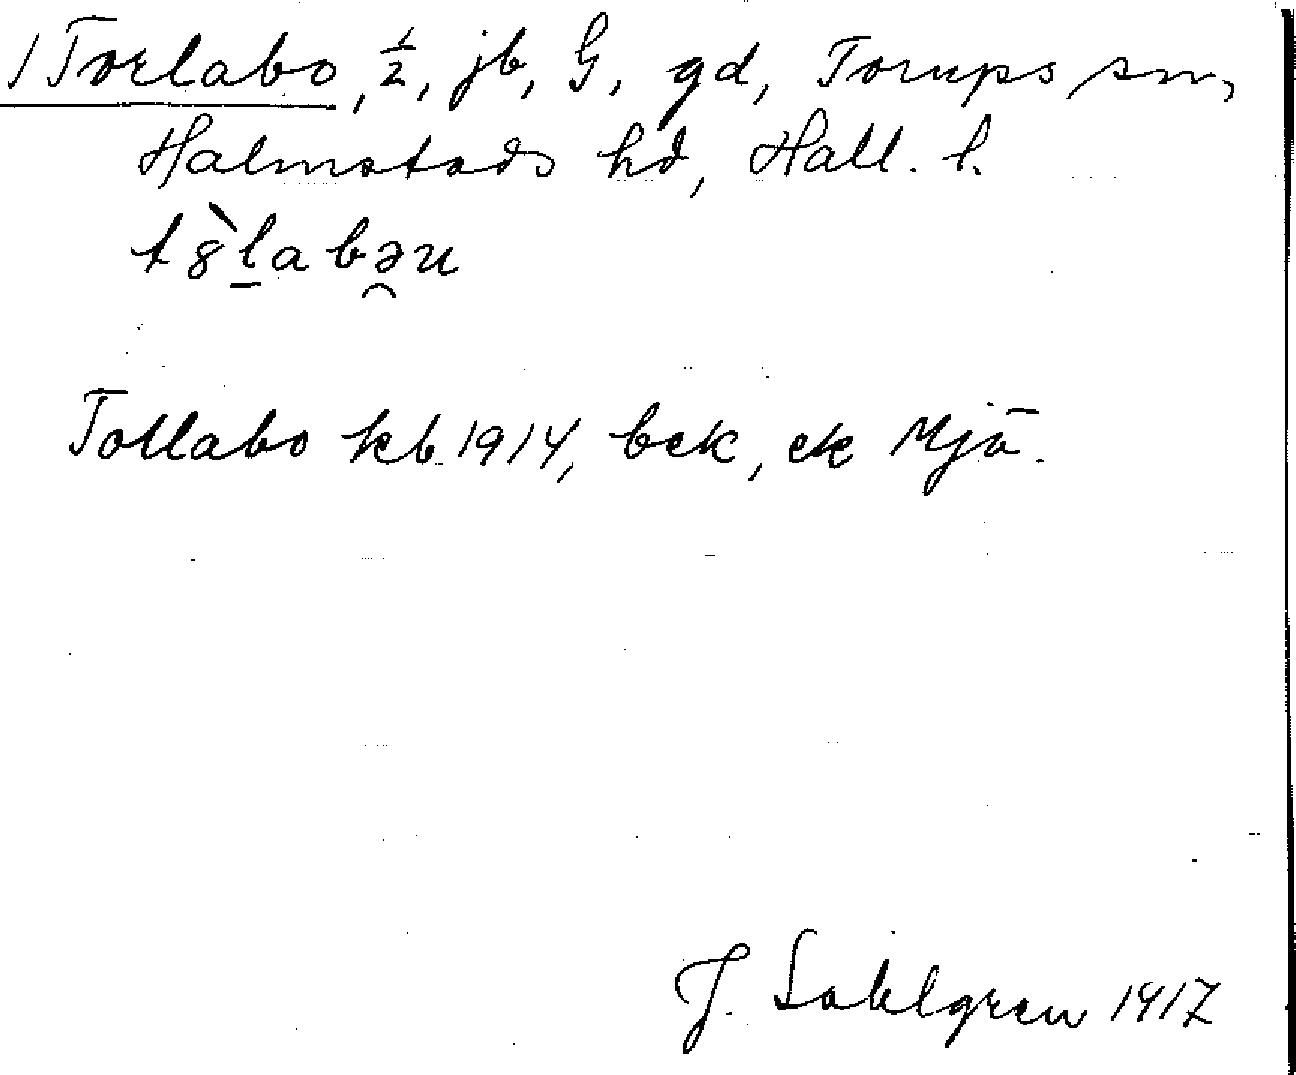 /Torlabo, ½, jb, G, gd, Torups sn,
Halmstads hd, Hall. l.
t8̀l̠abə̯u
Tollabo kb 1914, bek, ek Mjā.
J. Sahlgren 1917